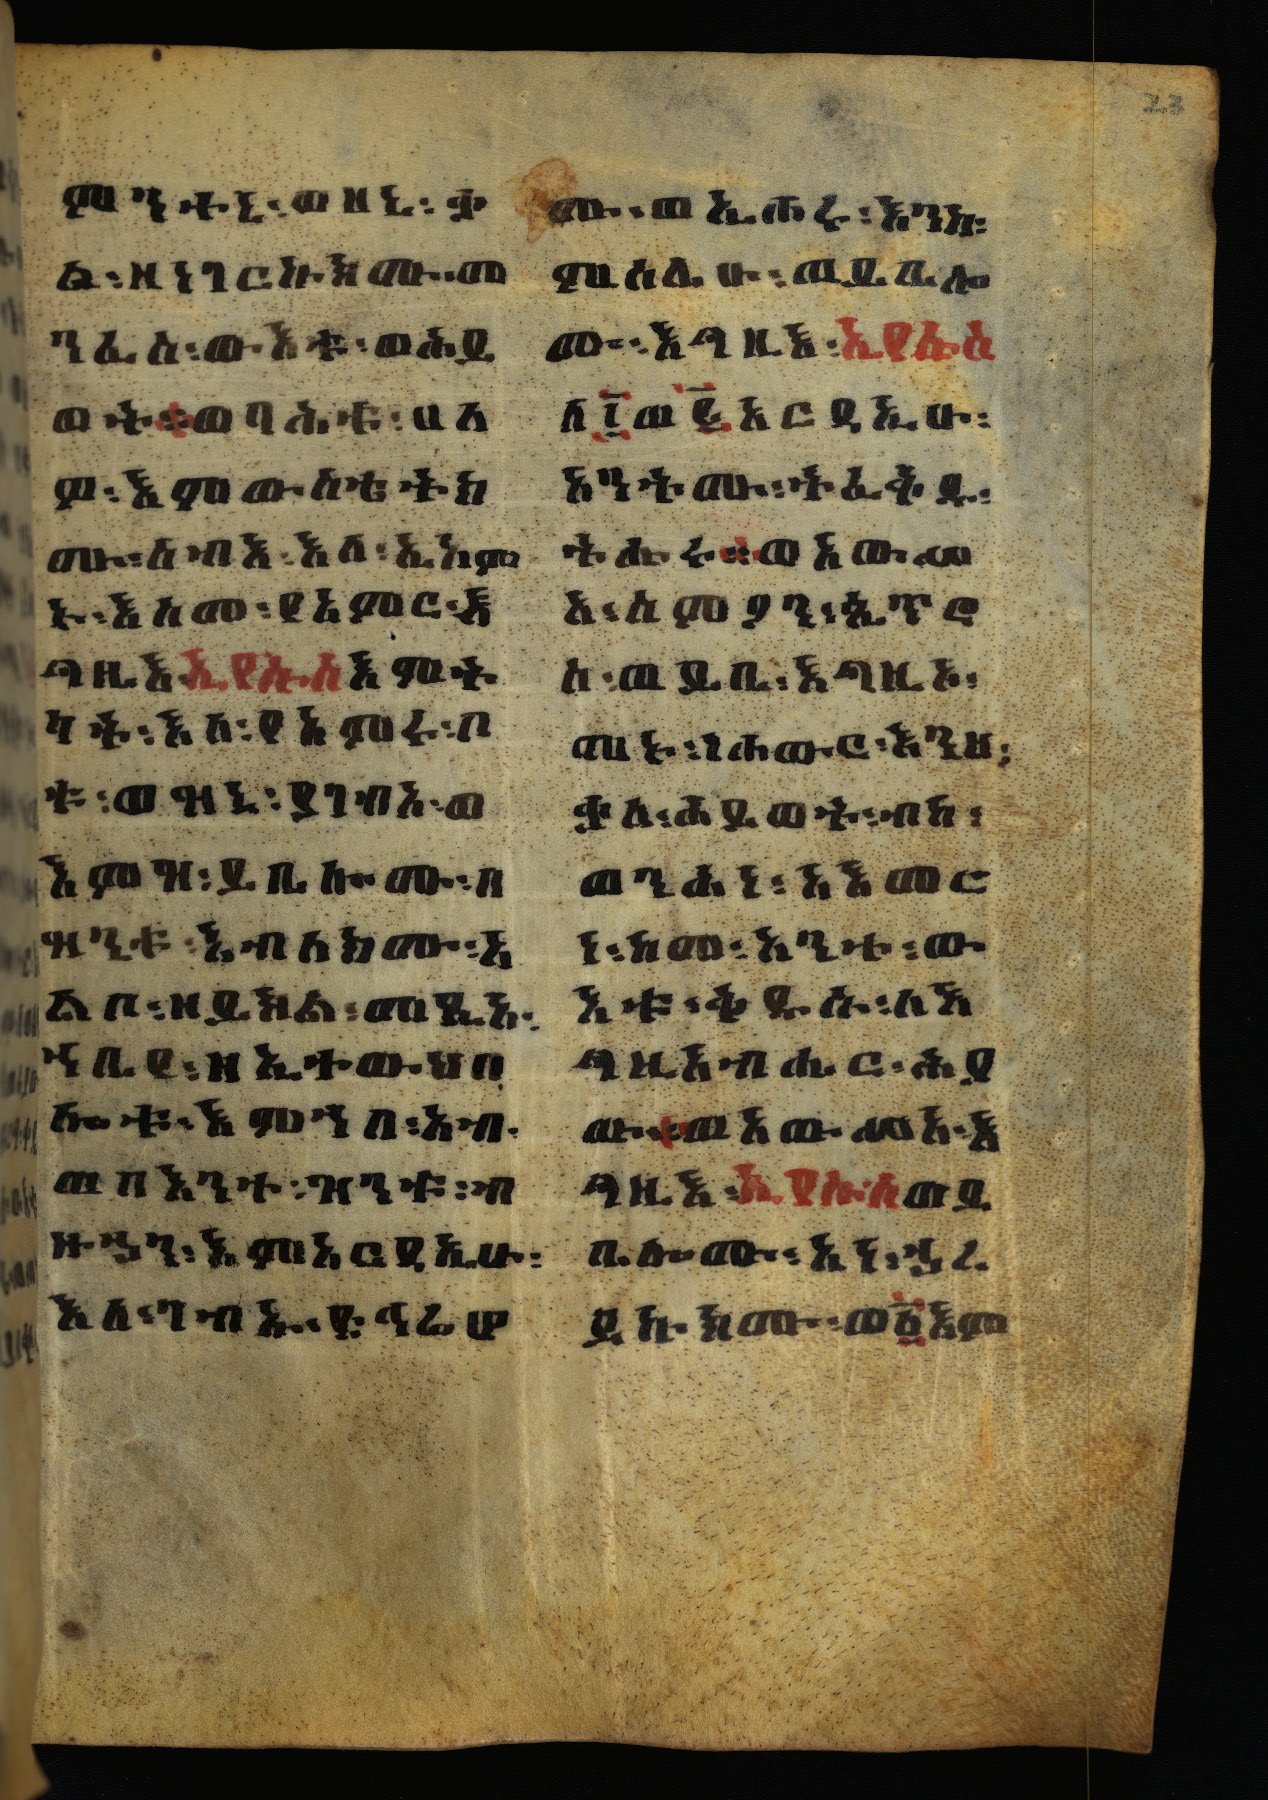 23
ማኅተኒ፡ወዝኒ፡ቃ
ል፡ዘነገርኩክሙ፡መ
ንፈስ፡ውእቱ፡ወሕይ
ወት፡ወባሕቱ፡ሀለ
ዉ፡እምውስቴትክ
ሙ፡ሰብእ፡እለ፡ኢአም
ኑ፡እስመ፡የአምር፡እ
ግዚእ፡ኢየሱስ፡እምት
ካት፡እለ፡የአምሩ፡ቦ
ቱ፡ወዘኒ፡ያገብእ፡ወ
እምዝ፡ይቤሎሙ፡በ
ዝንቱ፡እብለክሙ፡አ
ልቦ፡ዘይክል፡መጺአ፡
ኀቤየ፡ዘኢተውህበ
ሎቱ፡እምኀበ፡አብ፡
ወበእንተ፡ዝንቱ፡ብ
ዙኃን፡እምአርዳኢሁ፡
እለ፡ገብኡ፡ድኅሬሆ
ሙ፡ወኢሖሩ፡እንከ፡
ምስሌሁ፡ወይቤሎ
ሙ፡እግዚእ፡ኢየሱስ
ለ፲ወ፪አርዳኢሁ፡
አንትሙ፡ትፈቅዱ፡
ትሑሩ፡ወአውሥ
አ፡ስምዖን፡ጴጥሮ
ስ፡ወይቤ፡እግዚኦ፡
መኑ፡ነሐውር፡እንዘ፡
ቃለ፡ሕይወት፡ብከ፡
ወንሕነ፡አእመር
ነ፡ከመ፡አንተ፡ው
እቱ፡ቅዱሱ፡ለእ
ግዚአብሔር፡ሕያ
ው፡ወአውሥአ፡እ
ግዚእ፡ኢየሱስ፡ወይ
ቤሎሙ፡አነ፡ኃረ
ይኩክሙ፡ወ፩እም